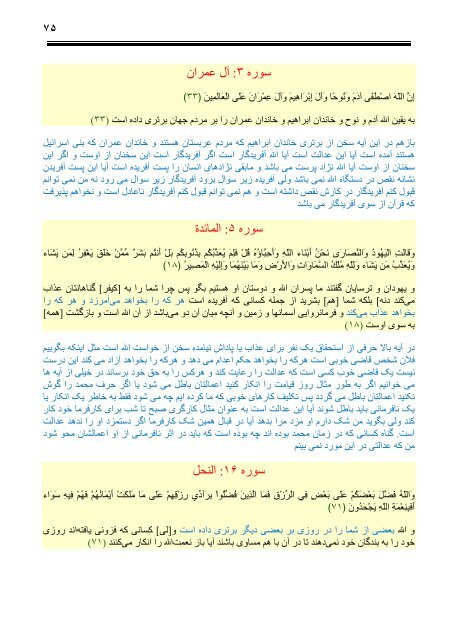 ۷۵
سوره ۳: آل عمران
إِنَّ اللّهَ اصْطَفَى آدَمَ وَنُوحًا وَآلَ إِبْرَاهِيمَ وَآلَ عِمْرَانَ عَلَى الْعَالَمِينَ ﴿۳۳﴾
به یقین الله آدم و نوح و خاندان ابراهیم و خاندان عمران را بر مردم جهان برتری داده است (۳۳)
بازهم در این آیه سخن از برتری خاندان ابراهیم که مردم عربستان هستند و خاندان عمران که بنی اسرائیل
هستند آمده است آیا این عدالت است آیا الله آفریدگار است اگر آفریدگار است این سخنان از اوست و اگر این
سخنان از اوست آیا الله نژاد پرست می باشد و مابقی نژادهای انسان را پست آفریده است آیا این پست آفریدن
نشانه نقص در دستگاه الله نمی باشد ولی آفریده زیر سوال برود آفریدگار زیر سوال می رود نه من نمی توانم
قبول کنم آفریدگار در کارش نقص داشته است و هم نمی توانم قبول کنم آفریدگار ناعادل است و نخواهم پذیرفت
که قرآن از سوی آفریدگار می باشد
سوره ۵: المائدة
وَقَالَتِ الْيَهُودُ وَالنَّصَارَى نَحْنُ أَبْنَاء اللّهِ وَأَحِبَّاؤُهُ قُلْ فَلِمَ يُعَذِّبُكُم بِذُنُوبِكُم بَلْ أَنتُم بَشَرٌ مِّمَّنْ خَلَقَ يَغْفِرُ لِمَن يَشَاء
وَيُعَذِّبُ مَن يَشَاء وَلِلّهِ مُلْكُ السَّمَاوَاتِ وَالأَرْضِ وَمَا بَيْنَهُمَا وَإِلَيْهِ الْمَصِيرُ ﴿۱۸﴾
و یهودان و ترسایان گفتند ما پسران الله و دوستان او هستیم بگو پس چرا شما را به [کیفر] گناهانتان عذاب
می‌کند [نه] بلکه شما [هم] بشرید از جمله کسانی که آفریده است هر که را بخواهد می‌آمرزد و هر که را
بخواهد عذاب می‌کند و فرمانروایی آسمانها و زمین و آنچه میان آن دو می‌باشد از آن الله است و بازگشت [همه]
به سوی اوست (۱۸)
در آیه بالا حرفی از استحقاق یک نفر برای عذاب یا پاداش نیامده سخن از خواست الله است مثل اینکه بگوییم
فلان شخص قاضی خوبی است هر که را بخواهد حکم اعدام می دهد و هرکه را بخواهد آزاد می کند این درست
نیست یک قاضی خوب کسی است که عدالت را رعایت کند و هرکس را به حق خود برساند در خیلی از آیه ها
می خوانیم اگر به طور مثال روز قیامت را انکار کنید اعمالتان باطل می شود یا اگر حرف محمد را گوش
نکنید اعمالتان باطل می گردد پس تکلیف کارهای خوبی که ما کرده ایم چه می شود فقط به خاطر یک انکار یا
یک نافرمانی باید باطل شوند آیا این عدالت است به عنوان مثال کارگری صبح تا شب برای کارفرما خود کار
کند ولی بگوید من شک دارم او مزد مرا بدهد آیا در قبال همین شک کارفرما اگر دستمزد او را ندهد عدالت
است, گناه کسانی که در زمان محمد بوده اند چه بوده است که باید در اثر نافرمانی از او اعمالشان محو شود
من که عدالتی در این مورد نمی بینم
سوره ۱۶: النحل
وَاللّهُ فَضَّلَ بَعْضَكُمْ عَلَى بَعْضٍ فِي الْرِّزْقِ فَمَا الَّذِينَ فُضِّلُواْ بِرَآدِّي رِزْقِهِمْ عَلَى مَا مَلَكَتْ أَيْمَانُهُمْ فَهُمْ فِيهِ سَوَاء
أَفَبِنِعْمَةِ اللّهِ يَجْحَدُونَ ﴿۷۱﴾
و الله بعضی از شما را در روزی بر بعضی دیگر برتری داده است و[لی] کسانی که فزونی یافته‌اند روزی
خود را به بندگان خود نمی‌دهند تا در آن با هم مساوی باشند آیا باز نعمت‌الله را انکار می‌کنند (۷۱)